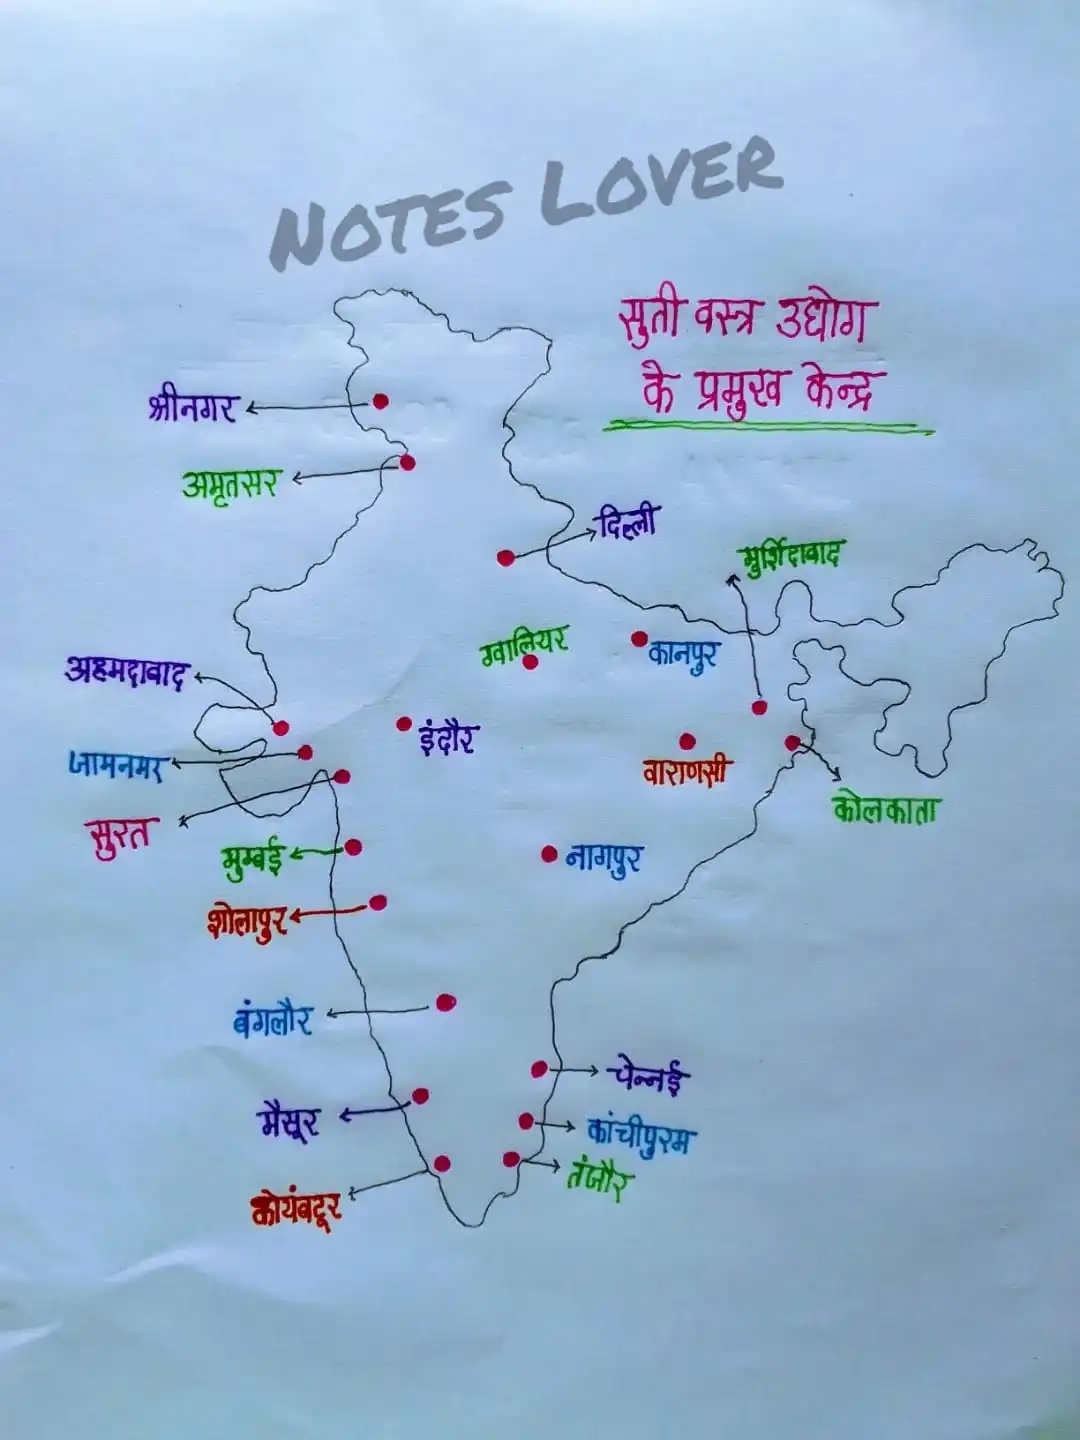 NOTES LOVER
सुती वस्त्र उद्योग
के प्रमुख केन्द्र
श्रीनगर
अमृतसर
दिल्ली
मुर्शिदावाद
ग्वालियर
कानपुर
अहमदावाद
इंदौर
जामनगर
वाराणसी
सुरत
कोलकाता
मुम्बई
नागपुर
शोलापुर
बंगलौर
चेन्नई
मैसूर
कांचीपुरम
तंजौर
कोयंबटूर